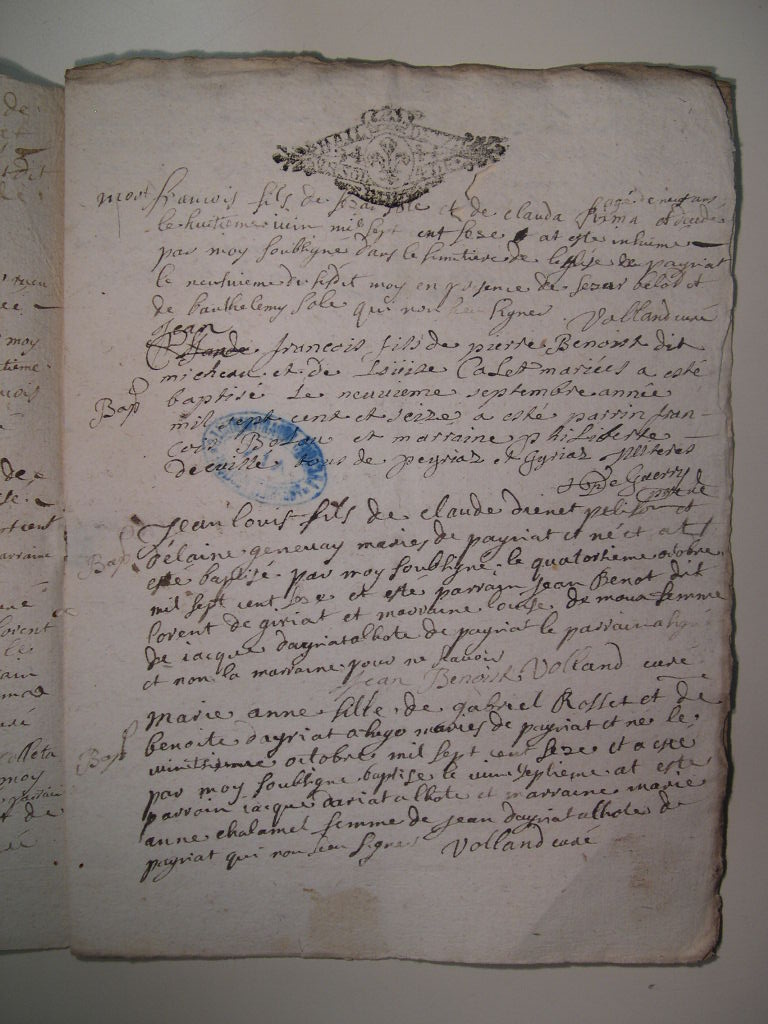 mort françois fils de sezar sole et de clauda firma agé de neuf ans et decedé
le huitieme iuin mil sept cent seze at esté inhume
par moy soubsigne dans le simitiere de leglise de payriat
le neufuieme du susdit moy en presence de sezar belod et
de barthelemy sole qui non sceu signer Volland curé
Jean
françois fils de pierre Benoist dit
micheau et de Louise Calet mariées a esté
Bap baptisé le neuuieme septembre année
mil sept cent et seize a esté parrin fran-
cois et marraine philiberte
tous de peyriaz et gyriaz
de Guerry
Jean louis fils de claude et
Bap elaine geneuay maries de payriat et né et at
esté baptisé par moy soubsigne le quatorsieme octobre
mil sept cent seze et esté parrain Jean Benot dit
lorent de giriat et marraine louise de moua femme
de iacque dayriat albote de payriat le parrain a signé
et non la marraine pour ne scavoir
Jean Benoist Volland curé
Marie anne fille de gabriel Rosset et de
Bap benoite dayriat maries de payriat et ne le
octobre mil sept cent seze et a esté
par moy soubsigne baptise le vint septieme at esté
parrain iacque dariat albote et marraine marie
anne chalamel femme de Jean dayriat albote de
payriat qui non sceu signer Volland curé